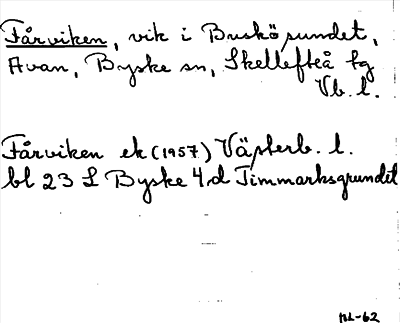 Fårviken, vik i Buskösundet,
Avan, Byske sn, Skellefteå tg
Vb. l.
Fårviken ek (1957) Västerb. l.
bl 23 L Byske 4d Timmarksgrundet
ML-62